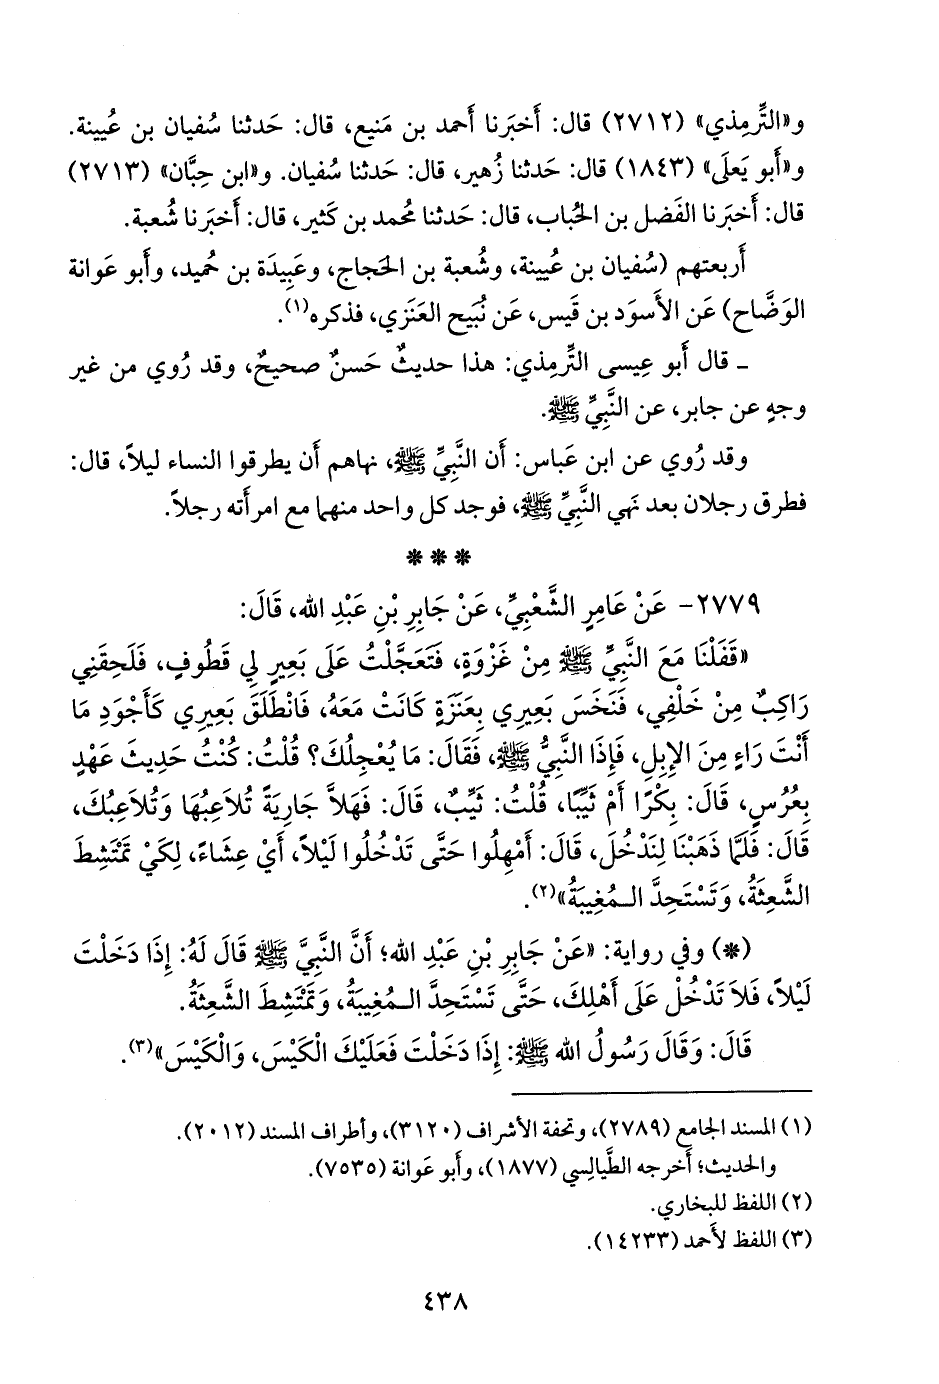 و«التِّرمِذي» (٢٧١٢) قال: أَخبَرنا أَحمد بن مَنيع، قال: حَدثنا سُفيان بن عُيينة.
و«أَبو يَعلَى» (١٨٤٣) قال: حَدثنا زُهير، قال: حَدثنا سُفيان. و«ابن حِبَّان» (٢٧١٣)
قال: أَخبَرنا الفَضل بن الحُباب، قال: حَدثنا مُحمد بن كَثير، قال: أَخبَرنا شُعبة.
أَربعتهم (سُفيان بن عُيينة، وشُعبة بن الحَجاج، وعَبِيدَة بن حُميد، وأَبو عَوانة
الوَضَّاح) عَن الأَسوَد بن قَيس، عَن نُبَيح العَنَزي، فذكره(١).
ـ قال أَبو عِيسى التِّرمِذي: هذا حديثٌ حَسنٌ صحيحٌ، وقد رُوي من غير
وجهٍ عن جابر، عن النَّبيِّ ﷺ.
وقد رُوي عن ابن عَباس: أَن النَّبيِّ ﷺ، نهاهم أَن يطرقوا النساء ليلاً، قال:
فطرق رجلان بعد نَهي النَّبيِّ ﷺ، فوجد كل واحد منهما مع امرأَته رجلاً.
* * *
٢٧٧٩- عَنْ عَامِرٍ الشَّعْبِيِّ، عَنْ جَابِرِ بْنِ عَبْدِ الله، قَالَ:
«قَفَلْنَا مَعَ النَّبِيِّ ﷺ مِنْ غَزْوَةٍ، فَتَعَجَّلْتُ عَلَى بَعِيرٍ لِي قَطُوفٍ، فَلَحِقَنِي
رَاكِبٌ مِنْ خَلْفِي، فَنَخَسَ بَعِيرِي بِعَنَزَةٍ كَانَتْ مَعَهُ، فَانْطَلَقَ بَعِيرِي كَأَجْوَدِ مَا
أَنْتَ رَاءٍ مِنَ الإِبِلِ، فَإِذَا النَّبِيُّ ﷺ، فَقَالَ: مَا يُعْجِلُكَ؟ قُلْتُ: كُنْتُ حَدِيثَ عَهْدٍ
بِعُرُسٍ، قَالَ: بِكْرًا أَمْ ثَيِّبًا، قُلْتُ: ثَيِّبٌ، قَالَ: فَهَلاَّ جَارِيَةً تُلاَعِبُهَا وَتُلاَعِبُكَ،
قَالَ: فَلَمَّا ذَهَبْنَا لِنَدْخُلَ، قَالَ: أَمْهِلُوا حَتَّى تَدْخُلُوا لَيْلاً، أَيْ عِشَاءً، لِكَيْ تَمْتَشِطَ
الشَّعِثَةُ، وَتَسْتَحِدَّ الـمُغِيبَةُ»(٢).
(*) وفي رواية: «عَنْ جَابِرِ بْنِ عَبْدِ الله؛ أَنَّ النَّبِيَّ ﷺ قَالَ لَهُ: إِذَا دَخَلْتَ
لَيْلاً، فَلاَ تَدْخُلْ عَلَى أَهْلِكَ، حَتَّى تَسْتَحِدَّ الـمُغِيبَةُ، وَتَمْتَشِطَ الشَّعِثَةُ.
قَالَ: وَقَالَ رَسُولُ الله ﷺ: إِذَا دَخَلْتَ فَعَلَيْكَ الْكَيْسَ، وَالْكَيْسَ»(٣).
(١) المسند الجامع (٢٧٨٩)، وتحفة الأشراف (٣١٢٠)، وأطراف المسند (٢٠١٢).
والحديث؛ أَخرجه الطَّيالِسي (١٨٧٧)، وأَبو عَوانة (٧٥٣٥).
(٢) اللفظ للبخاري.
(٣) اللفظ لأَحمد (١٤٢٣٣).
٤٣٨